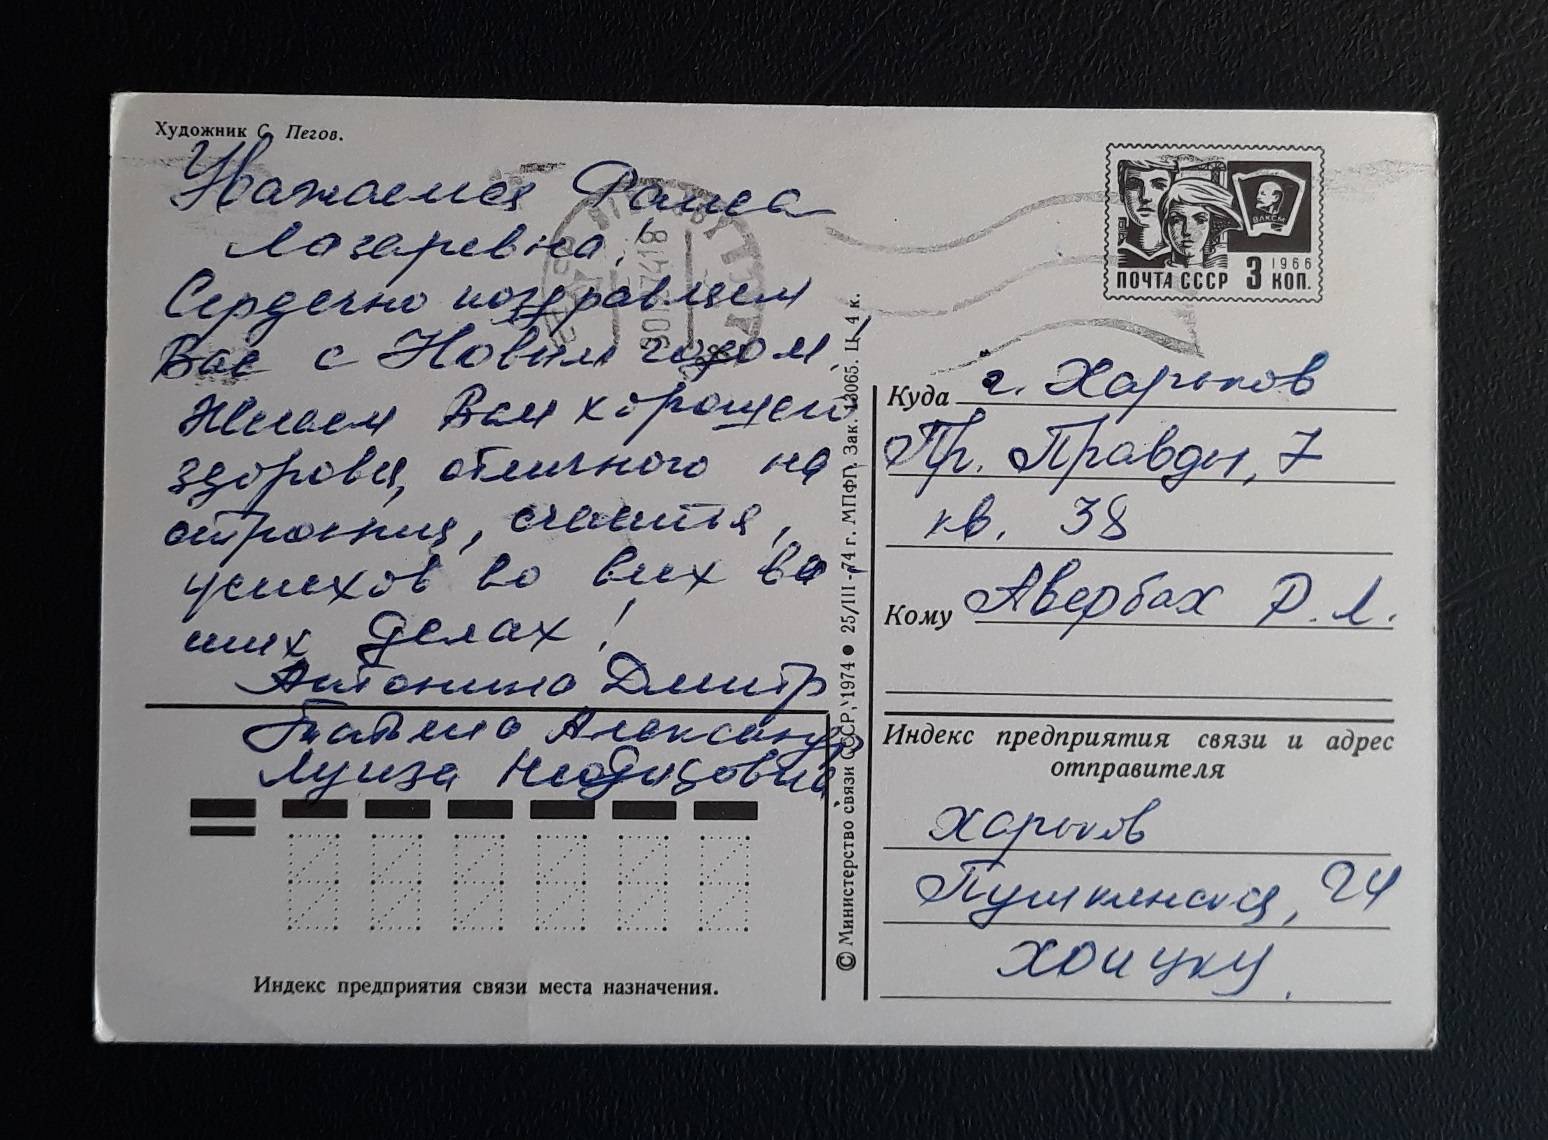 Художник С. Пегов.
Уважаемая Раиса
Лазаревна!
Сердечно поздравляем
Вас с Новым годом!
Желаем Вам хорошего
здоровья, отличного на
строения, счастья,
успехов во всех ва-
ших делах!
Антонина Дмитр
Татьяна Александр
Луиза
Индекс предприятия связи места назначения.
© Министерство связи СССР, 1974 ● 25/III-74 г. МПФГ. Зак. 13065. Ц. 4 к.
ВЛКСМ
1966
ПОЧТА СССР 3 КОП.
Куда г. Харьков
Пр. Правды, 7
кв. 38
Кому Авербах Р. Л.
Индекс предприятия связи и адрес
отправителя
Харьков
Пушкинская, 24